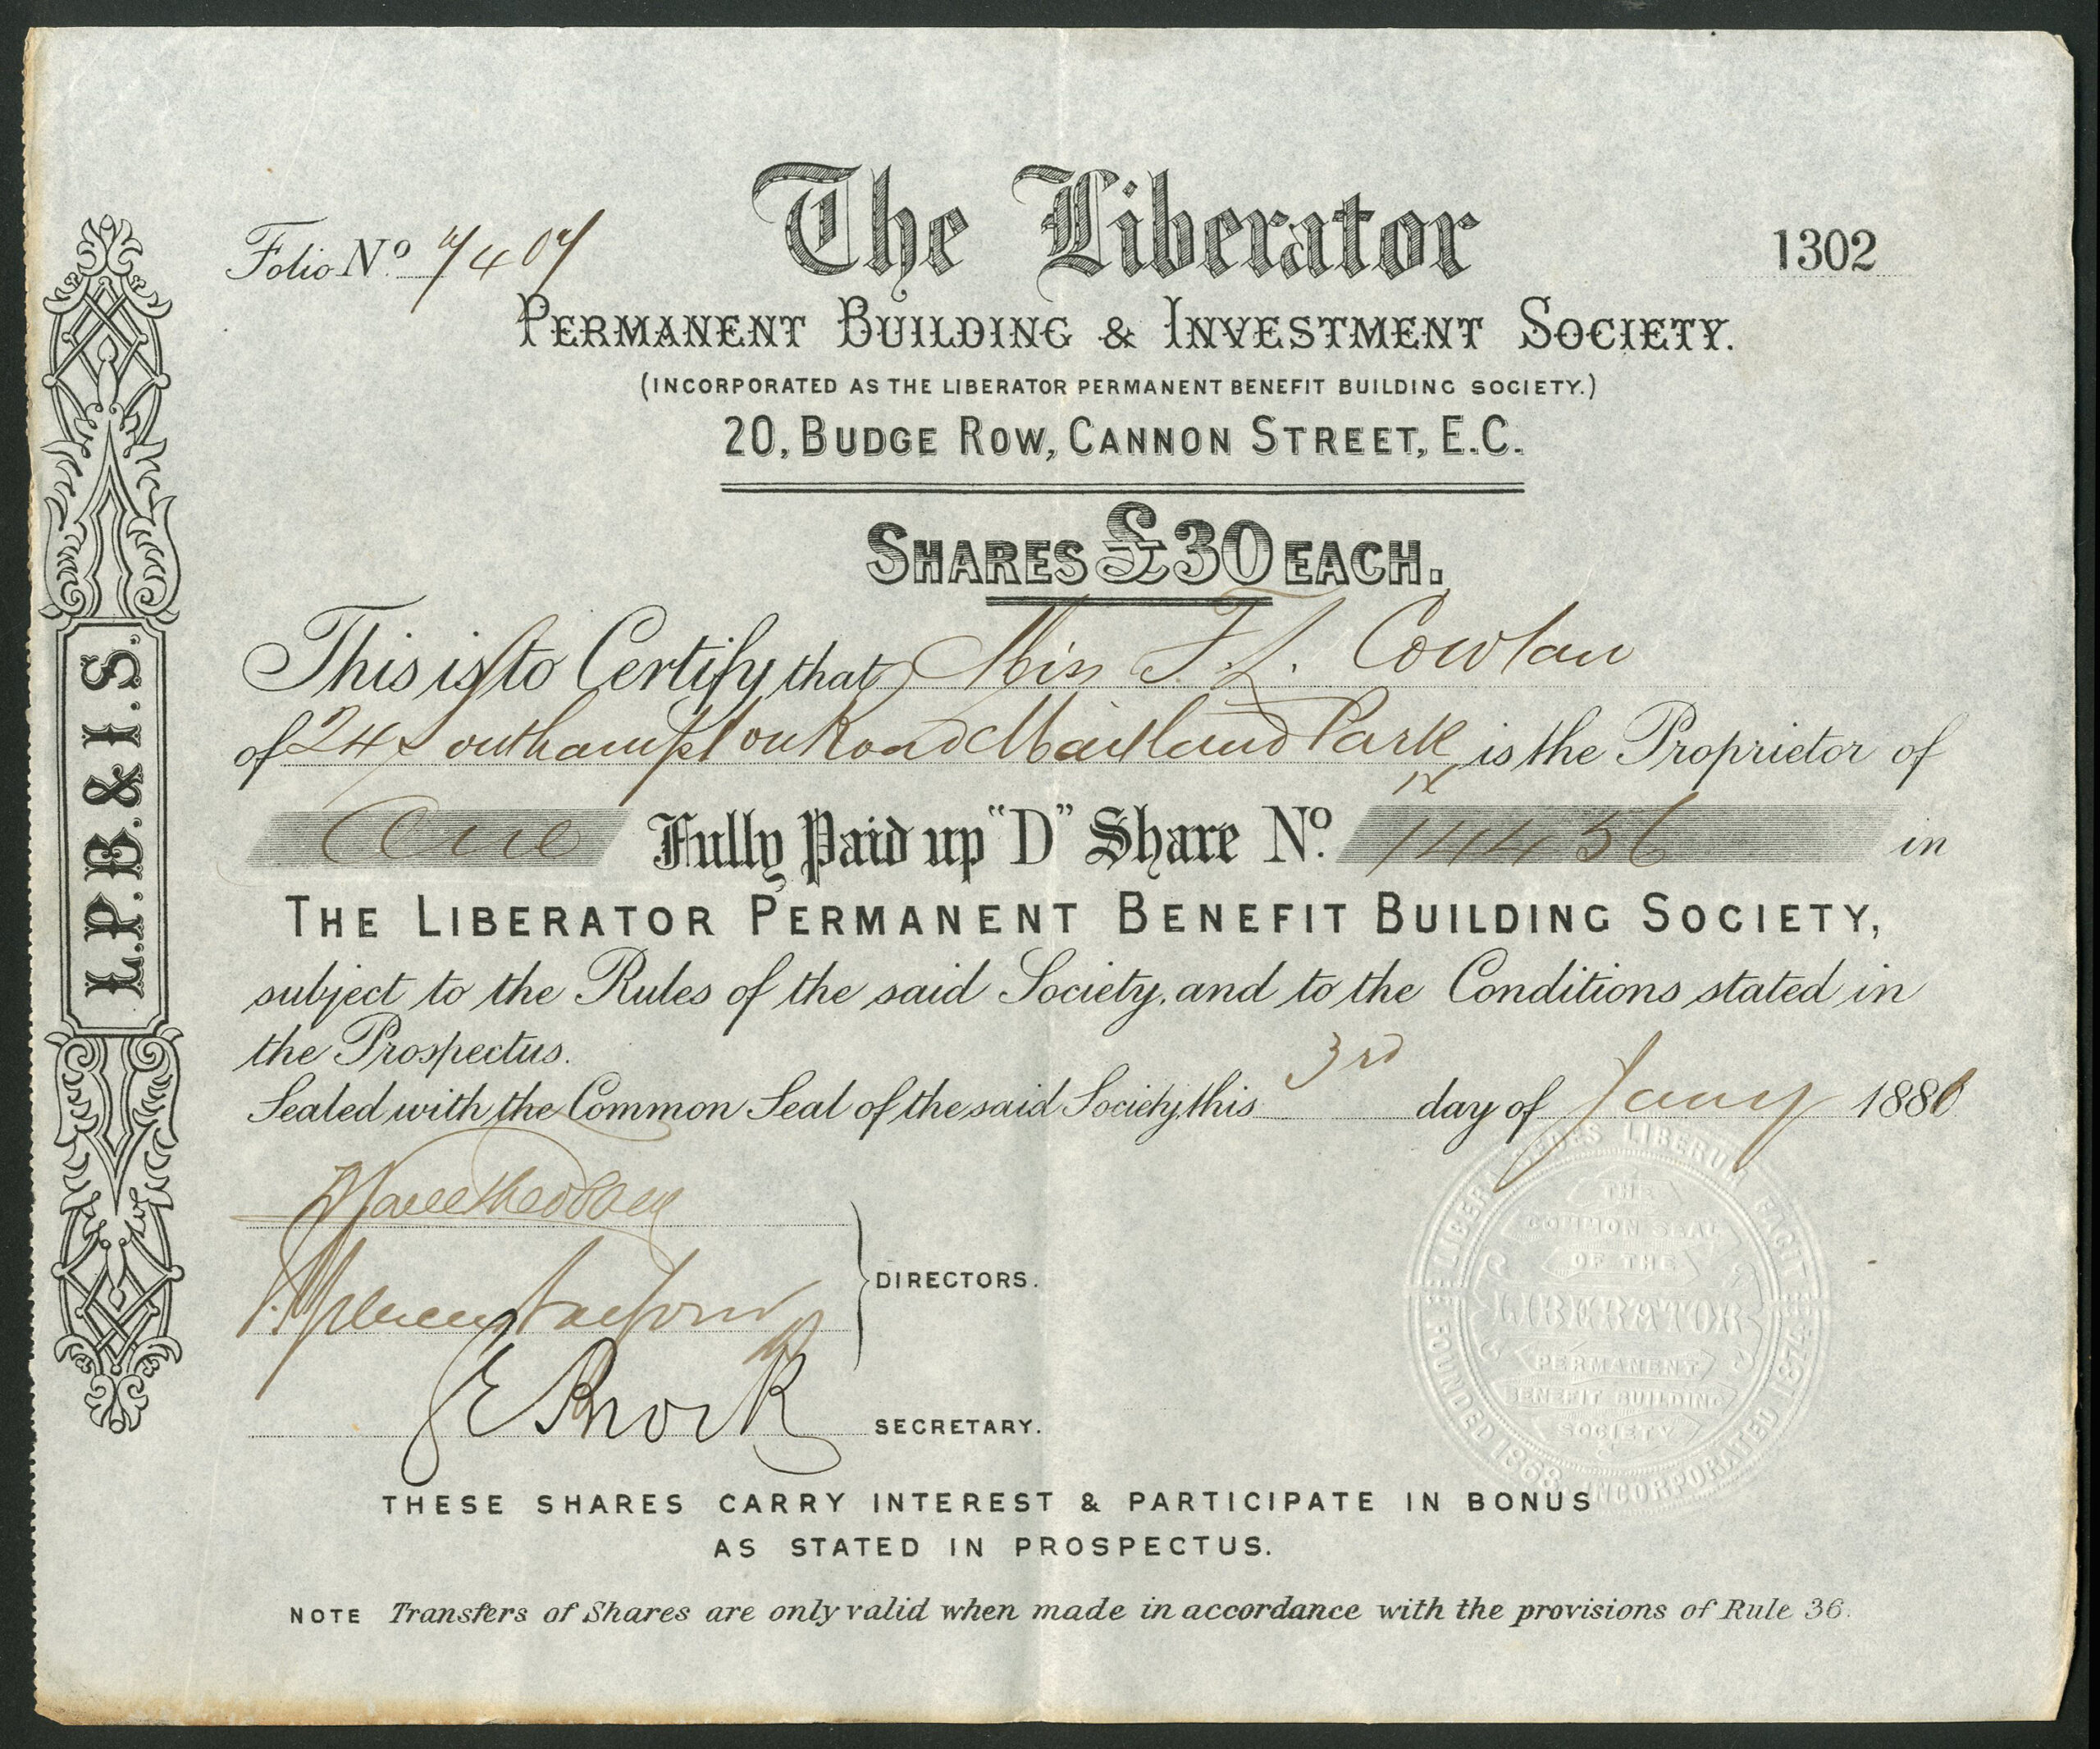 The Liberator
Folio No. 7407
1302
PERMANENT BUILDING & INVESTMENT SOCIETY.
(INCORPORATED AS THE LIBERATOR PERMANENT BENEFIT BUILDING SOCIETY.)
20, BUDGE ROW, CANNON STREET, E.C.
SHARES £30 EACH.
This is to Certify that Miss F. L. Cowtan
of 24 Southampton Road Maitland Park is the Proprietor of
One Fully Paid up "D" Share No. in
THE LIBERATOR PERMANENT BENEFIT BUILDING SOCIETY,
subject to the Rules of the said Society, and to the Conditions stated in
the Prospectus.
Sealed with the Common Seal of the said Society, this 3rd day of Jany 1886
DIRECTORS.
SECRETARY.
THESE SHARES CARRY INTEREST & PARTICIPATE IN BONUS
AS STATED IN PROSPECTUS.
NOTE Transfers of Shares are only valid when made in accordance with the provisions of Rule 36.
L.P.B. & I.S.
LIBERA SEDES LIBERUM FACIT
FOUNDED 1868 INCORPORATED 1874
THE
COMMON SEAL
OF THE
LIBERATOR
PERMANENT
BENEFIT BUILDING
SOCIETY